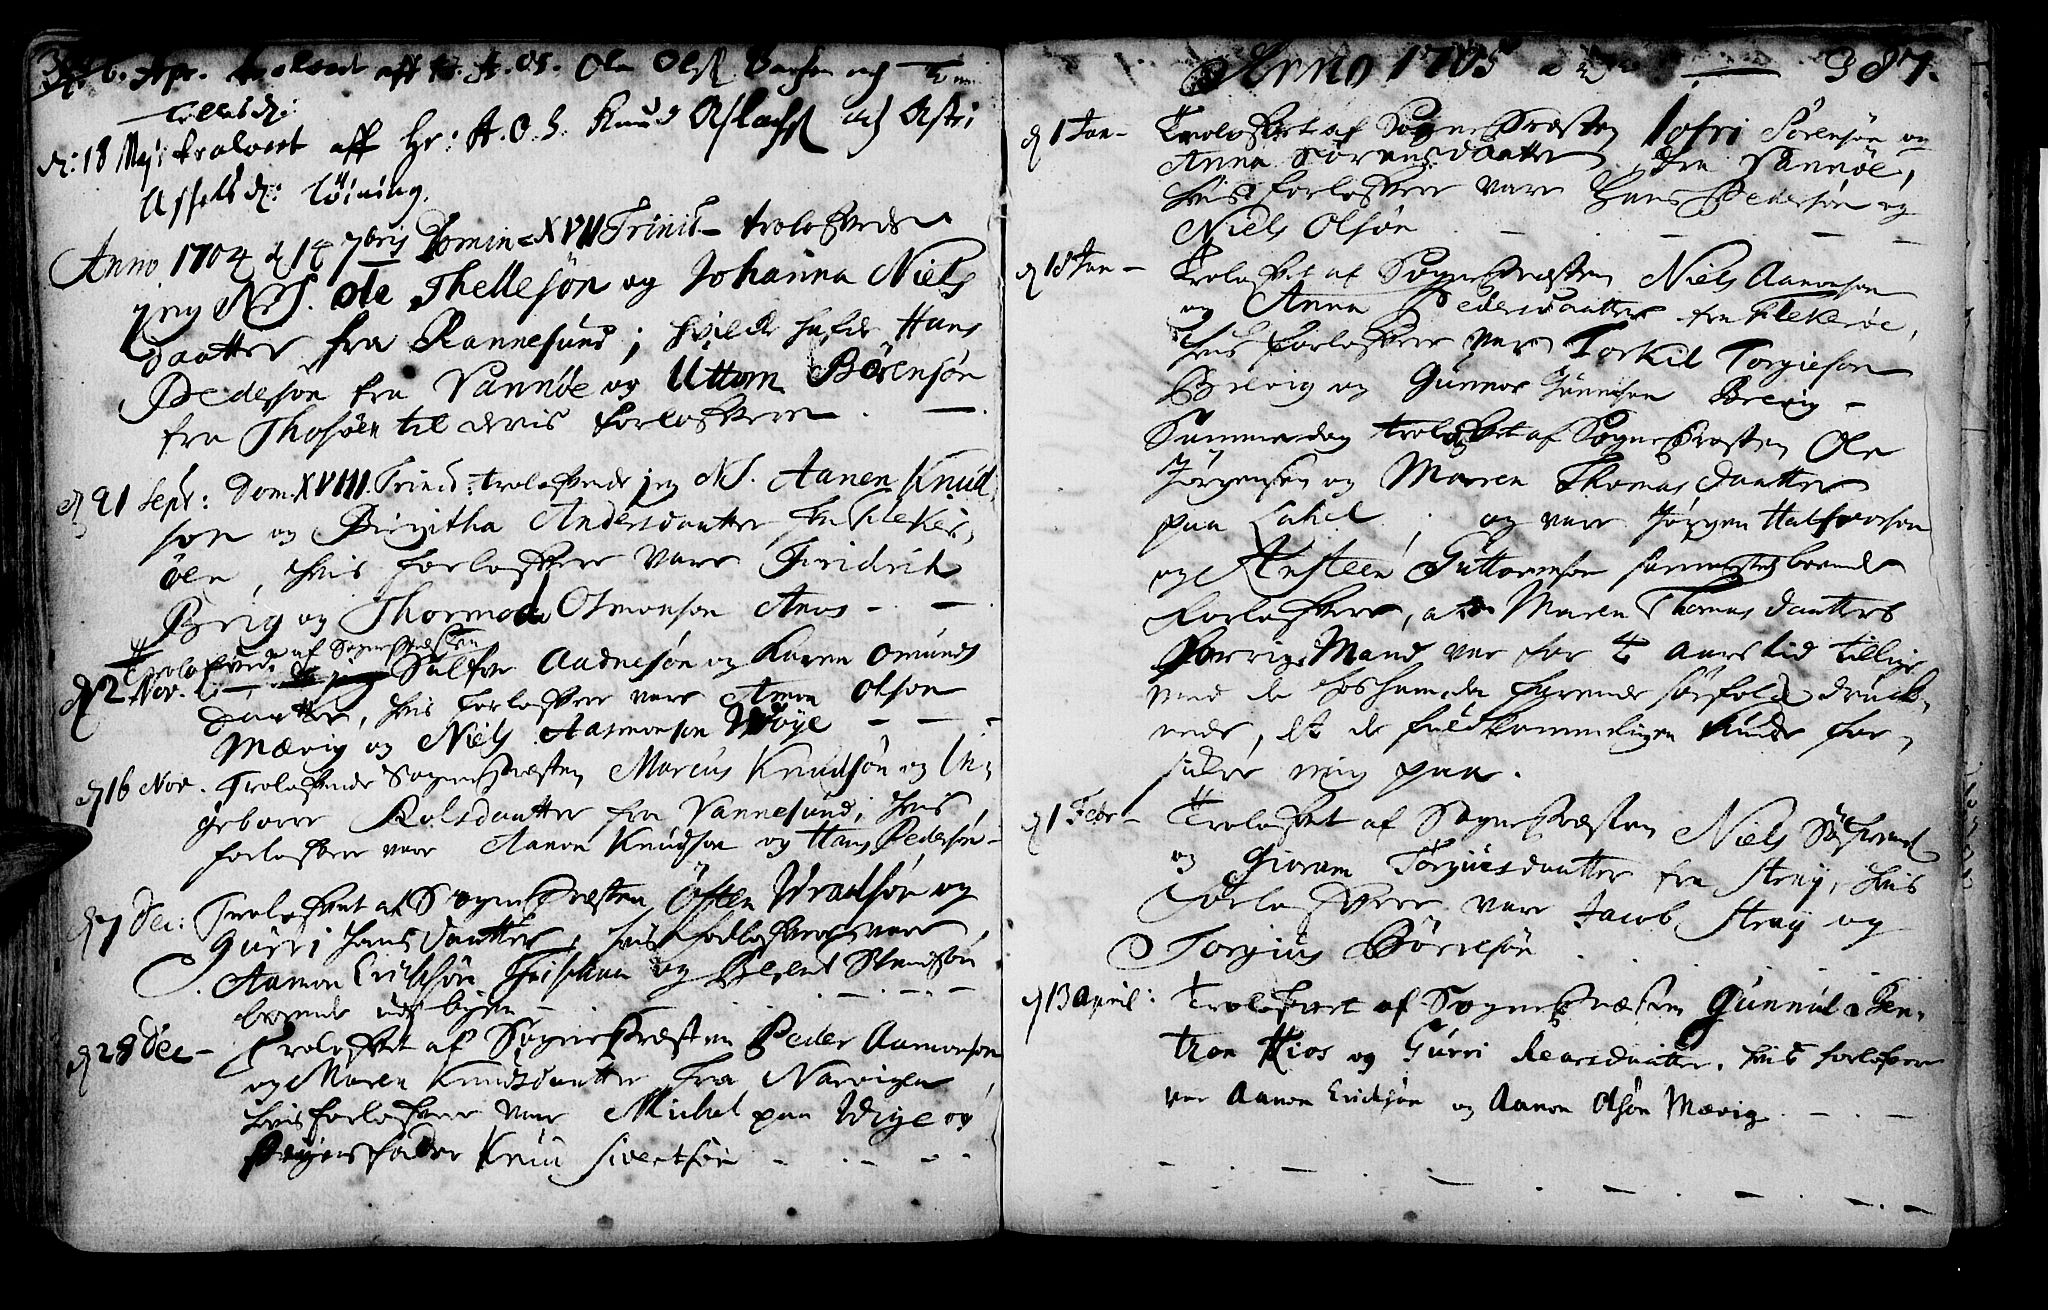 d: 6. Apr. trolovet aff H. A. OS. Ole Ols
Tellefsd:
d: 18 Maji trolovet aff Hr: A. O. S. Knud Aslachs och Astri
Assels d: Töining.
Anno 1704 d 14 7bris Domin. XVII Trinit. trolofvede
jeg N. S. Ole Thellesön og Johanna Niels
daatter fra Rannesund; hvilcke hafde Hans
Pedersön fra Vannöe og Uttorm Börensön
fra Thosöen til deris forlofvere.
d 21 Sept: Dom. XVIII. Trinit: trolofvede jeg N.S. Aanen Knud
son og Birgitha Andersdaatter fra Fleker-
öen, hvis forlofvere vare Fridrich
Brig og Thormod Osmonson Aros
Trolofvede af Sognepræsten
d 2 Nov. Salfve Aadnesön og Karen Omunds
daatter, hvis forlofvere vare Amon Olson
Mærvig og Niels Aasmonson Vöye
d 16 Nov. Trolofvede Sognepræsten Marcus Knudsön og In-
geborre Rolsdaatter fra Vannesund, hvis
forlofvere vare Aanon Knudson og Hans Pedersön
d 7 Dec: Trolofvet af Sognepræsten Östen Vradsön og
Gurri Hansdaatter, hvis forlofvere vare
Aamon Erichsön og Berent Svendsön
boende udi byen
d 28 Dec Trolofvet af Sognepræsten Peder Aamonson
og Maren Knudsdaatter fra Narvigen
hvis forlofvere vare Michel paa Vöye og
Pigens fader Knud Sivertsön
Anno 1705 387.
d 1 Jan Trolofvet af Sognepræsten Iofri Sörensön og
Anna Sörensdaatter fra Vannöe,
hvis forlofvere vare Hans Pedersön og
Niels Olsön
d 18 Jan Trolofvet af Sognepræsten Niels Aanonson
og Anna Pedersdaatter fra Flekeröe,
hvis forlofvere vare Torkil Torgieson
Brevig og Gunnar Gunnison Brevig
Samme dag trolofvet af Sognepræsten Ole
Jörgensen og Maren Thomasdaatter
paa Lahel; og vare Jörgen Halfvorson
og Ansteen Guttormson sammestedz boende
forlofvere, Maren Thomasdaatters
forrige Mand var for 4 aars tid tillige
med de hos ham da farende druck-
nede, det de fuldkommeligen kunde for-
sickre mig paa.
d 1 Febr Trolofvet af Sognepræsten Niels
og Gioram Torgiusdaatter fra Straÿ, hvis
forlofvere vare Jacob Straÿ og
Torgius Börresön
d 13 April: Trolofvet af Sognepræsten Gunnül Ben-
tzon Kios og Gurri daatter, hvis forlofvere
var Aanon Erichsön og Aanon Olsön Mærvig